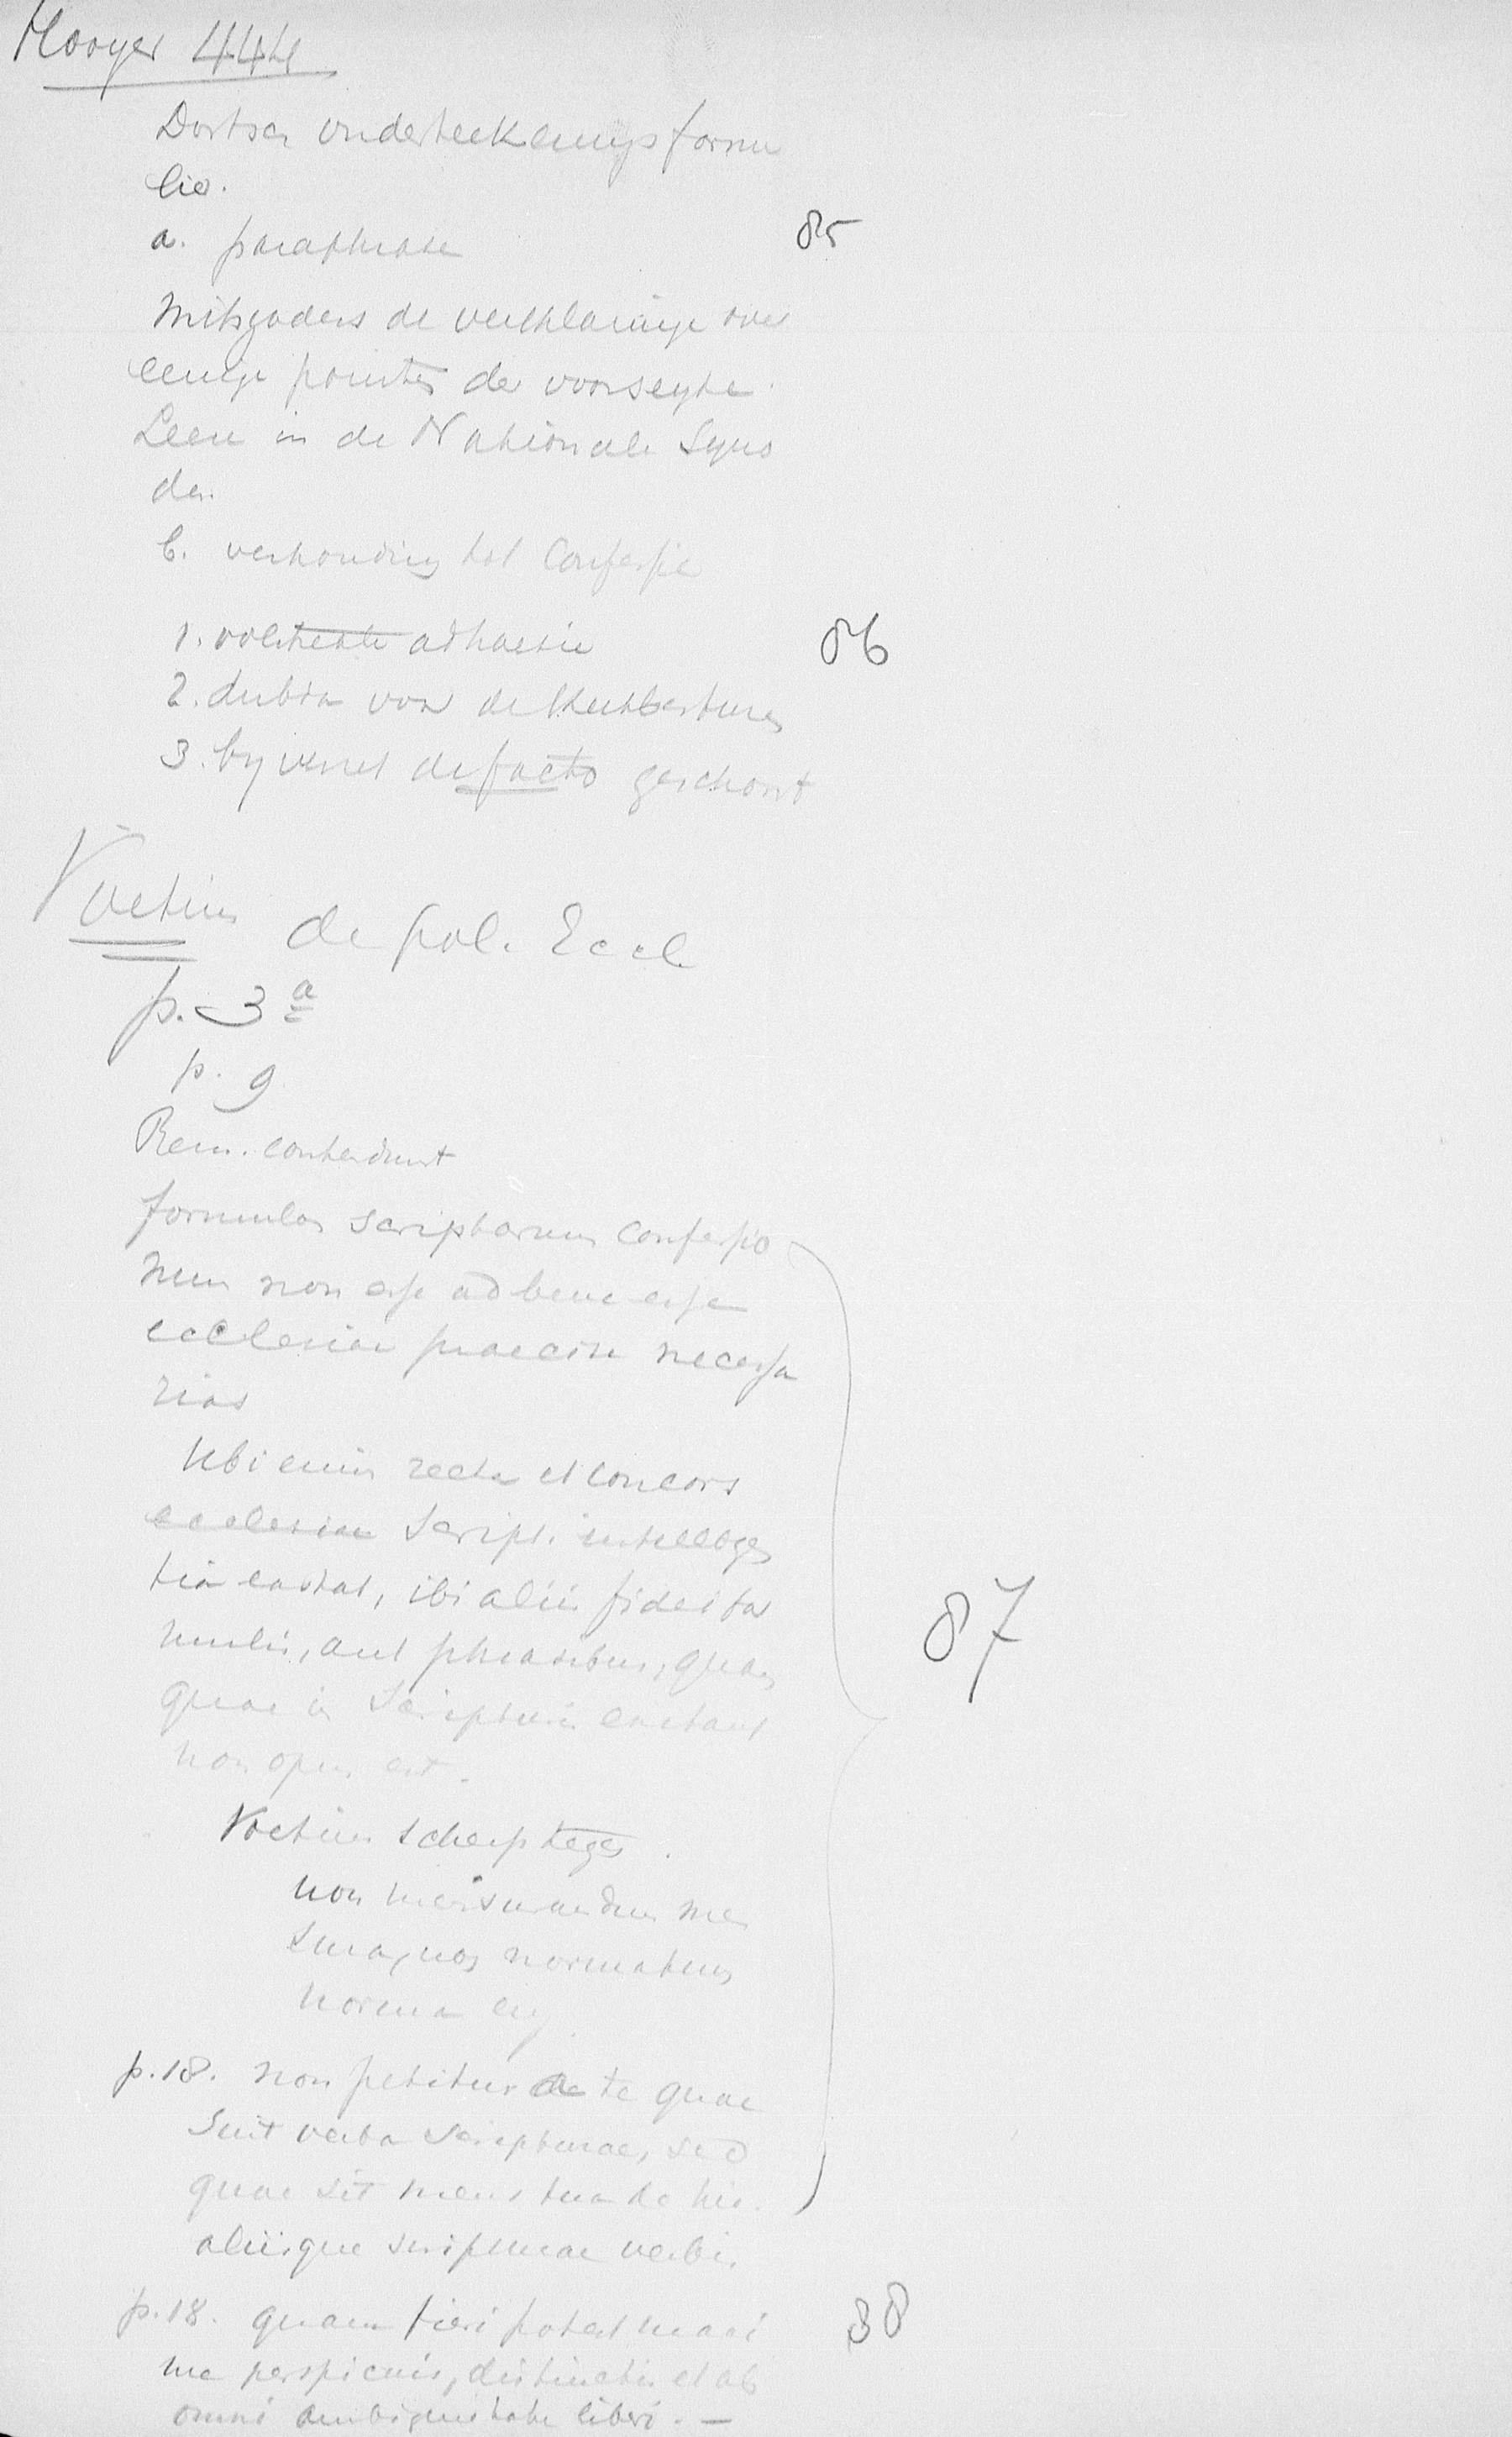 Hooyer 444
Dortsch onderteekeningsformu
lier.
a. paraphrase 85
Mitsgaders de verklaringe over
eenige pointen der voorseyde
Leere in de Nationale Syno
den.
b. verhouding tot Confessie
1. volstrekte adhaesie 86
2. dubia voor de Kerkbesturen
3. by verzet de facto geschorst
Voetius de pol. Eccl.
p. 3 a
p. 9
Rem. contendunt
formulas scriptarum confessio
num non esse ad bene esse
ecclesiae praecise necessa
rias
Ubi enim recta et concors
ecclesiae Script. intellegen
tia exstat, ibi aliis fidei for
mulis, aut phrasibus, quam
quae in Scripturis exstant
non opus est.
Voetius scherp tegen.
non mensurandum men
sura, nos normatum
norma
p. 18. non petitur a te quae
sint verba Scripturae, sed
quae sit mens tua de his 87
aliisque scripturae verbis
p. 18. quam fieri potest maxi 88
me perspicuis, distinctis et ab
omni ambiguitate liberi. —